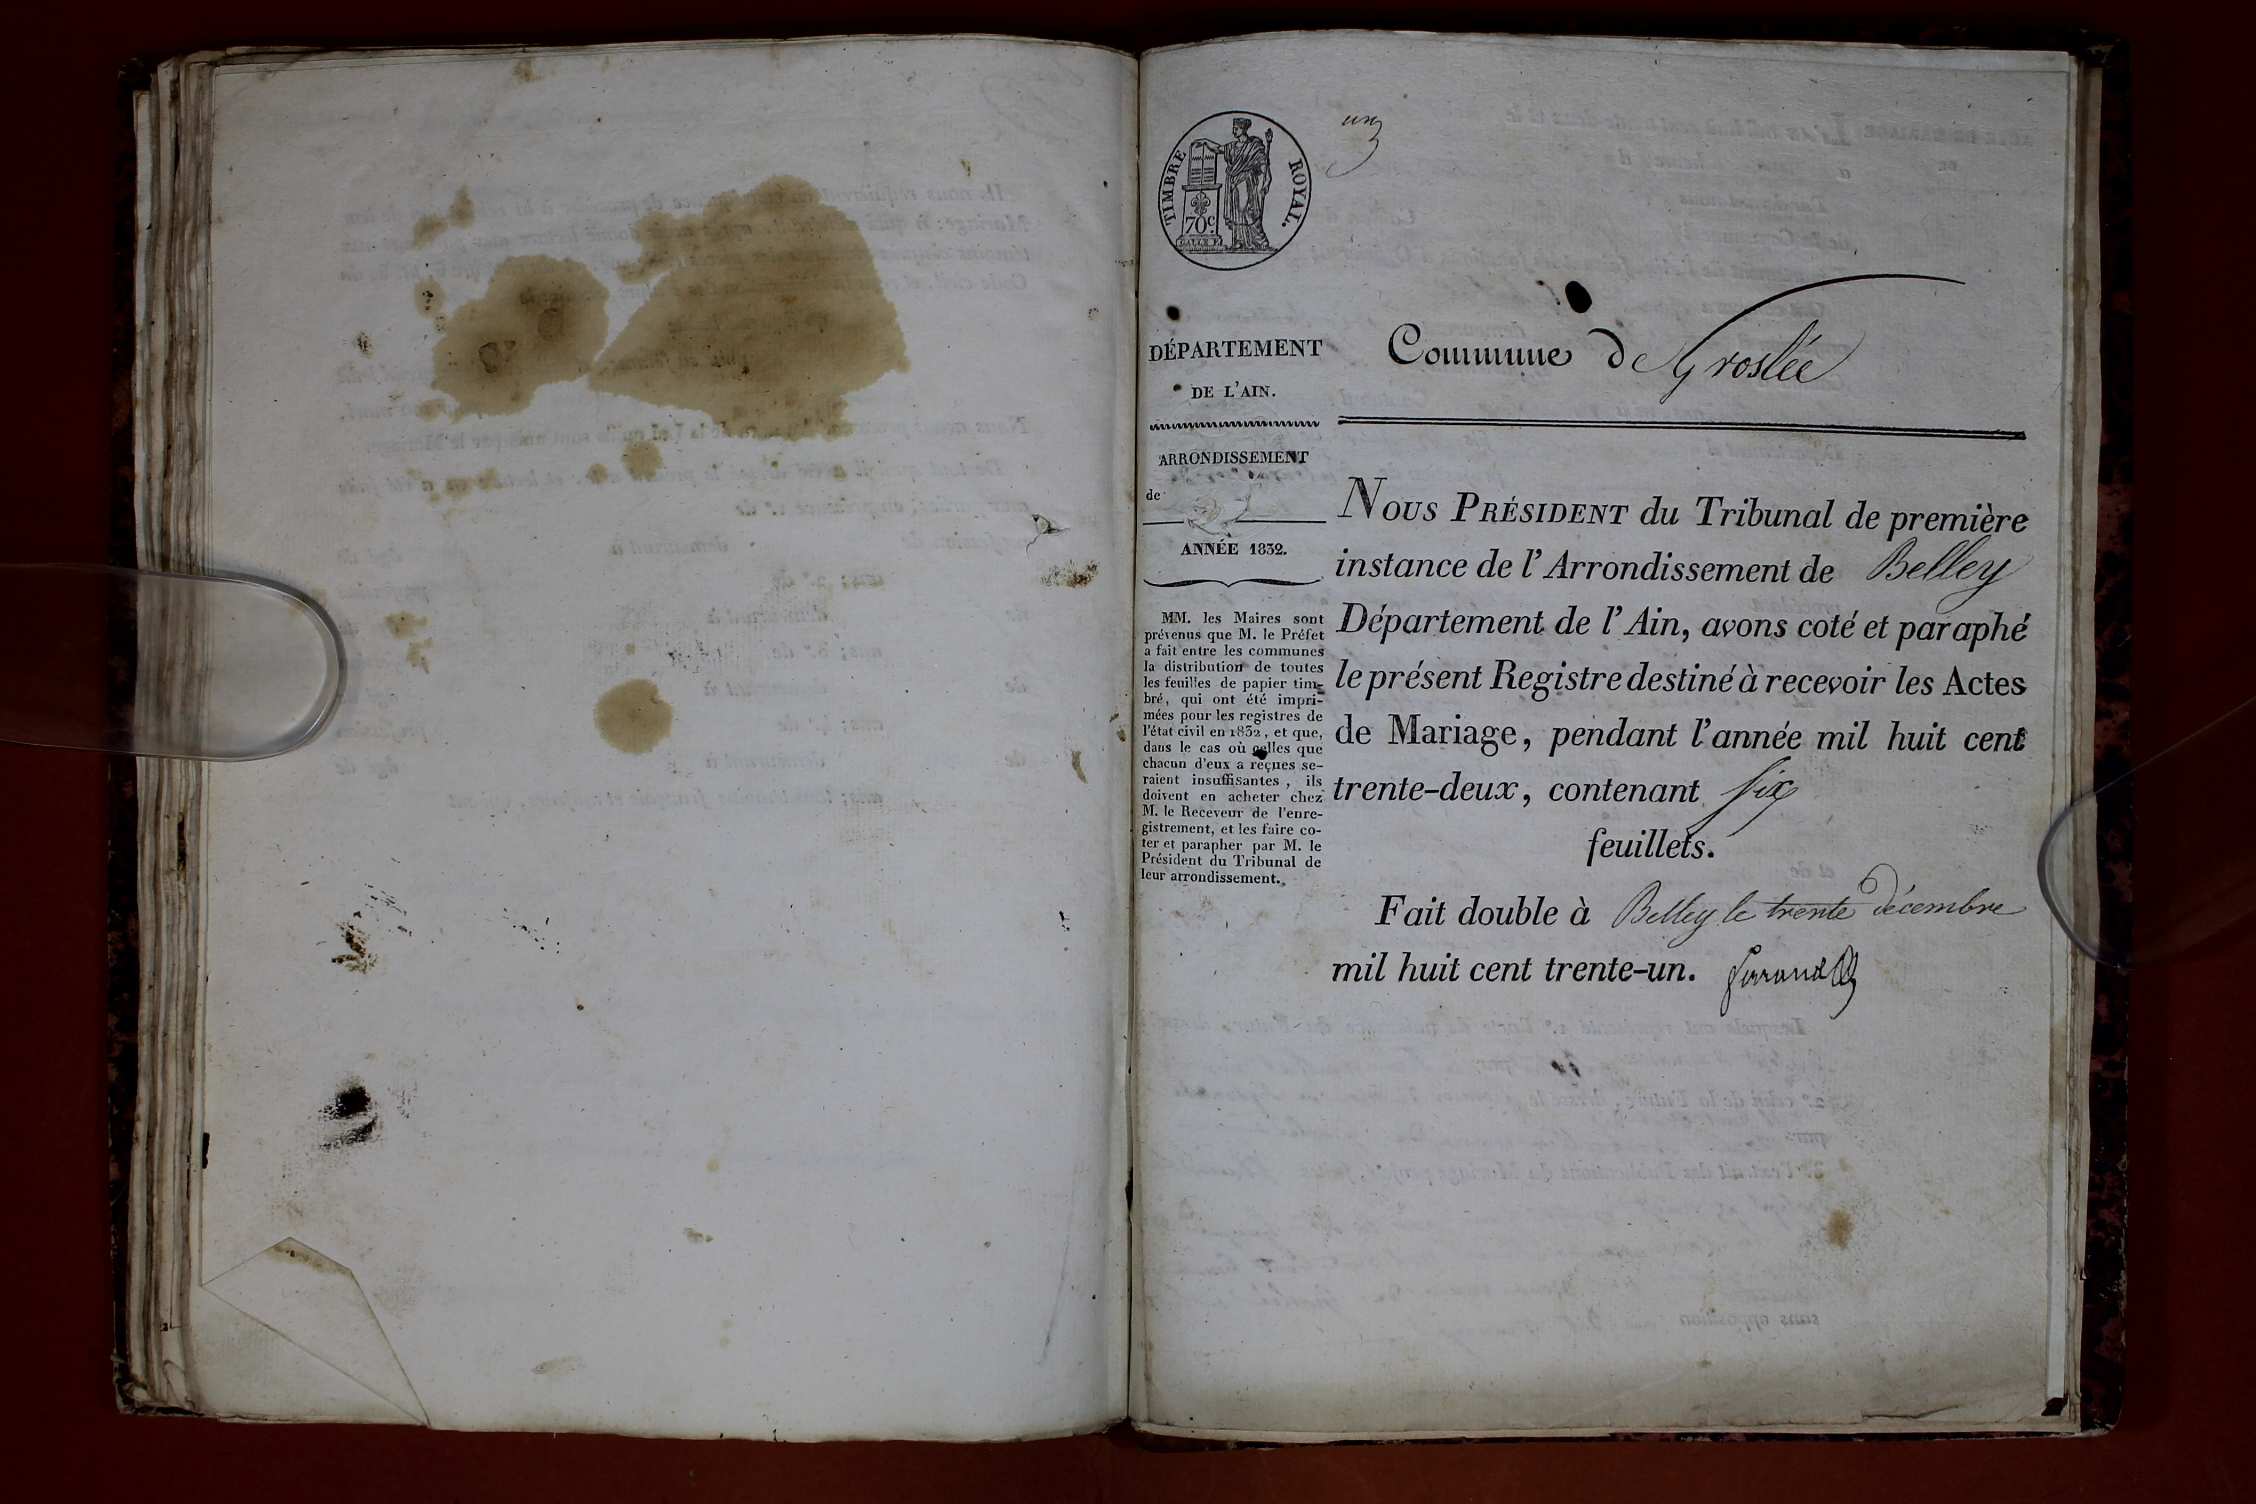 un
TIMBRE ROYAL.
70c.
GALLE F.
DÉPARTEMENT
DE L'AIN.
ARRONDISSEMENT
de
ANNÉE 1832.
MM. les Maires sont
prévenus que M. le Préfet
a fait entre les communes
la distribution de toutes
les feuilles de papier tim-
bré, qui ont été impri-
mées pour les registres de
l'état civil en 1832, et que,
dans le cas où celles que
chacun d'eux a reçues se-
raient insuffisantes, ils
doivent en acheter chez
M. le Receveur de l'enre-
gistrement, et les faire co-
ter et parapher par M. le
Président du Tribunal de
leur arrondissement.
Commune de Groslée
NOUS PRÉSIDENT du Tribunal de première
instance de l'Arrondissement de Belley
Département de l'Ain, avons coté et paraphé
le présent Registre destiné à recevoir les Actes
de Mariage, pendant l'année mil huit cent
trente-deux, contenant six
feuillets.
Fait double à Belley le trente décembre
mil huit cent trente-un.